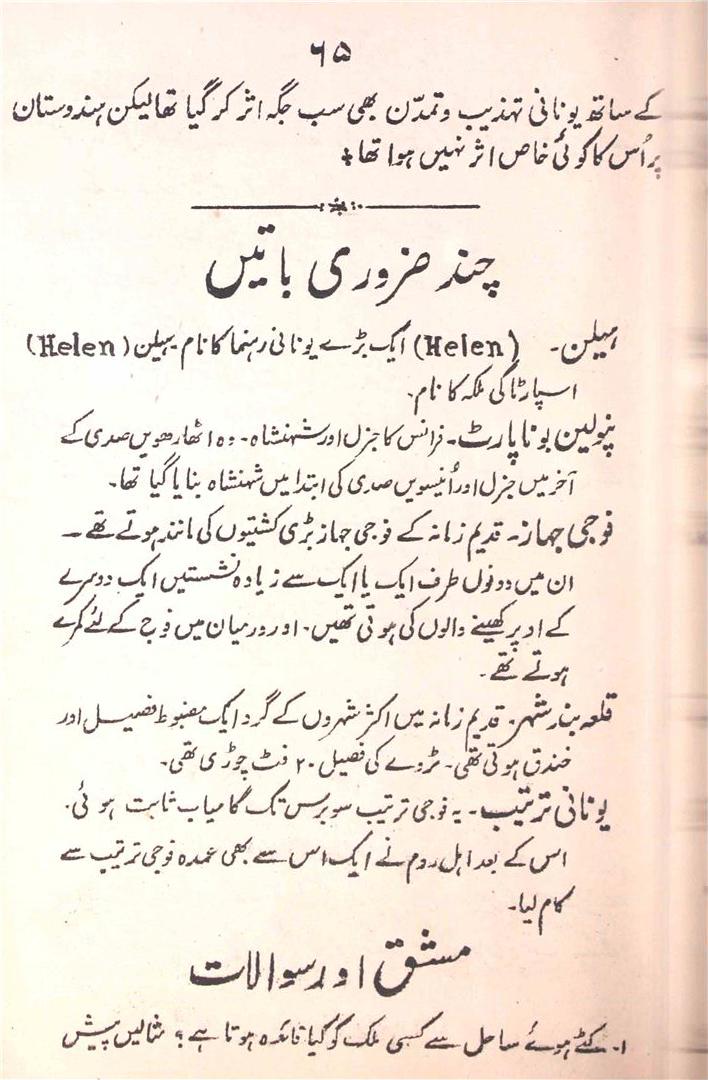 ۶۵
کے ساتھ یونانی تہذیب و تمدّن بھی سب جگہ اثر کر گیا تھا لیکن ہندوستان
پر اُس کا کوئی خاص اثر نہیں ہوا تھا۔
چند ضروری باتیں
ہیلن۔ (Helen) ایک بڑے یونانی رہنما کا نام۔ ہیلن (Helen)
اسپارٹا کی ملکہ کا نام۔
نپولین بوناپارٹ۔ فرانس کا جنرل اور شہنشاہ۔ وہ اٹھارھویں صدی کے
آخر میں جنرل اور اُنیسویں صدی کی ابتدا میں شہنشاہ بنایا گیا تھا۔
فوجی جہاز۔ قدیم زمانہ کے فوجی جہاز بڑی کشتیوں کی مانند ہوتے تھے۔
ان میں دونوں طرف ایک یا ایک سے زیادہ نشستیں ایک دوسرے
کے اوپر کھینے والوں کی ہوتی تھیں۔ اور درمیان میں فوج کے لئے کمرے
ہوتے تھے۔
قلعہ بند شہر۔ قدیم زمانہ میں اکثر شہروں کے گرد ایک مضبوط فصیل اور
خندق ہوتی تھی۔ ٹروے کی فصیل ۲۰ فٹ چوڑی تھی۔
یونانی ترتیب۔ یہ فوجی ترتیب سو برس تک کامیاب ثابت ہوئی۔
اس کے بعد اہل روم نے ایک اس سے بھی عمدہ فوجی ترتیب سے
کام لیا۔
مشق اور سوالات
۱۔ کٹے ہوئے ساحل سے کسی ملک کو کیا فائدہ ہوتا ہے؟ مثالیں پیش